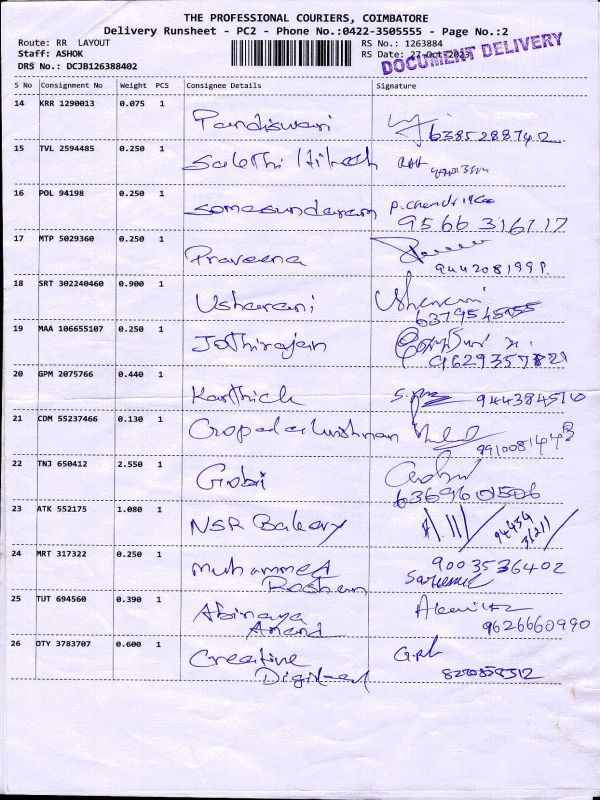 THE PROFESSIONAL COURIERS, COIMBATORE
Delivery Runsheet - PC2 - Phone No.:0422-3505555 - Page No.:2
Route: RR LAYOUT RS No.: 1263884
Staff: ASHOK RS Date: 27-Oct-2023
DOCUMENT DELIVERY
DRS No.: DCJB126388402
S No Consignment No Weight PCS Consignee Details Signature
14 KRR 1290013 0.075 1
Pandiswari 6385288742
15 TVL 2594485 0.250 1
Salethi
16 POL 94198 0.250 1
Somasundaram P.Chendrika
9566316717
17 MTP 5029360 0.250 1
Praveena
944208199
18 SRT 302240460 0.900 1
Usharani
19 MAA 106655107 0.250 1
Jothirajan
9629357821
20 GPM 2075766 0.440 1
Karthick 9443845710
21 CDM 55237466 0.130 1
Gopalakrishnan
22 TNJ 650412 2.550 1
Gobi
6369601506
23 ATK 552175 1.080 1
NSR Bakery
24 MRT 317322 0.250 1
Muhammed 9003536402
Roshan
25 TUT 694560 0.390 1
Abinaya
Anand 9626660990
26 OTY 3783707 0.600 1
Creative
Digital